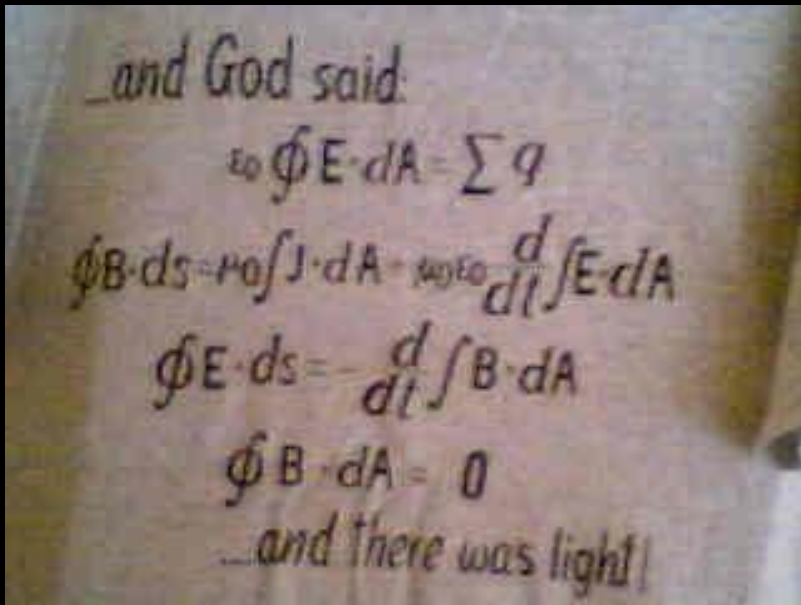 ...and God said:
ε0 ∮E·dA = ∑q
∮B·ds = μ0∫J·dA - μ0ε0 d/dt ∫E·dA
∮E·ds = - d/dt ∫B·dA
∮B·dA = 0
....and there was light!